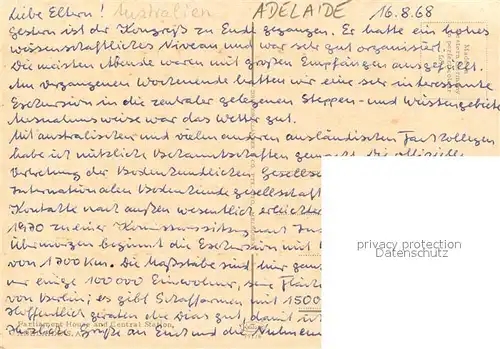 Liebe Eltern! Australien ADELAIDE 16.8.68
Gestern ist der Kongreß zu Ende gegangen. Er hatte ein hohes
wissenschaftliches Niveau und war sehr gut organisiert.
Die meisten Abende waren mit großen Empfängen ausgefüllt.
Am vergangenen Wochenende hatten wir eine sehr interessante
Exkursion in die zentraler gelegenen Steppen- und Wüstengebiete
Ausnahmsweise war das Wetter gut.
Mit australischen und vielen anderen ausländischen Fachkollegen
habe ich nützliche Bekanntschaften gemacht. Die offizielle
Vertretung der Bodenkundlichen Gesellsc
Internationalen Bodenkundegesellschaft
Kontakte nach außen wesentlich erleichter
1970 zu einer Kommissionssitzung nach
Übermorgen beginnt die Exkursion mit
von 1700 km. Die Maßstäbe sind hier ganz
nur einige 100000 Einwohner, seine Fläche
von Berlin; es gibt Schaffarmen mit 1500
Hoffentlich geraten die Dias gut, damit
Herzliche Grüße an Euch und die
Parliament House and Central Station,
privacy protection
www.ansichtskarten-center.de